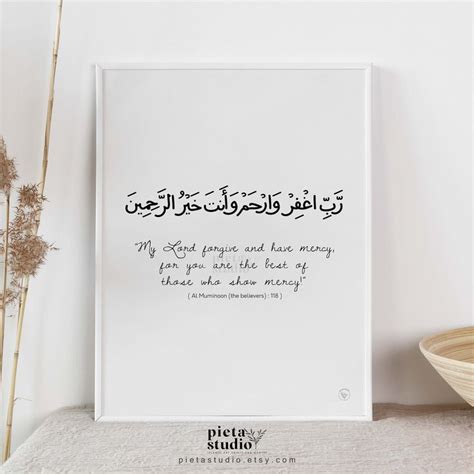 رَّبِّ اغْفِرْ وَارْحَمْ وَأَنتَ خَيْرُ الرَّاحِمِينَ
"My Lord forgive and have mercy,
for you are the best of
those who show mercy!"
( Al Muminoon (the believers) : 118 )
pieta
studio
pietastudio.etsy.com